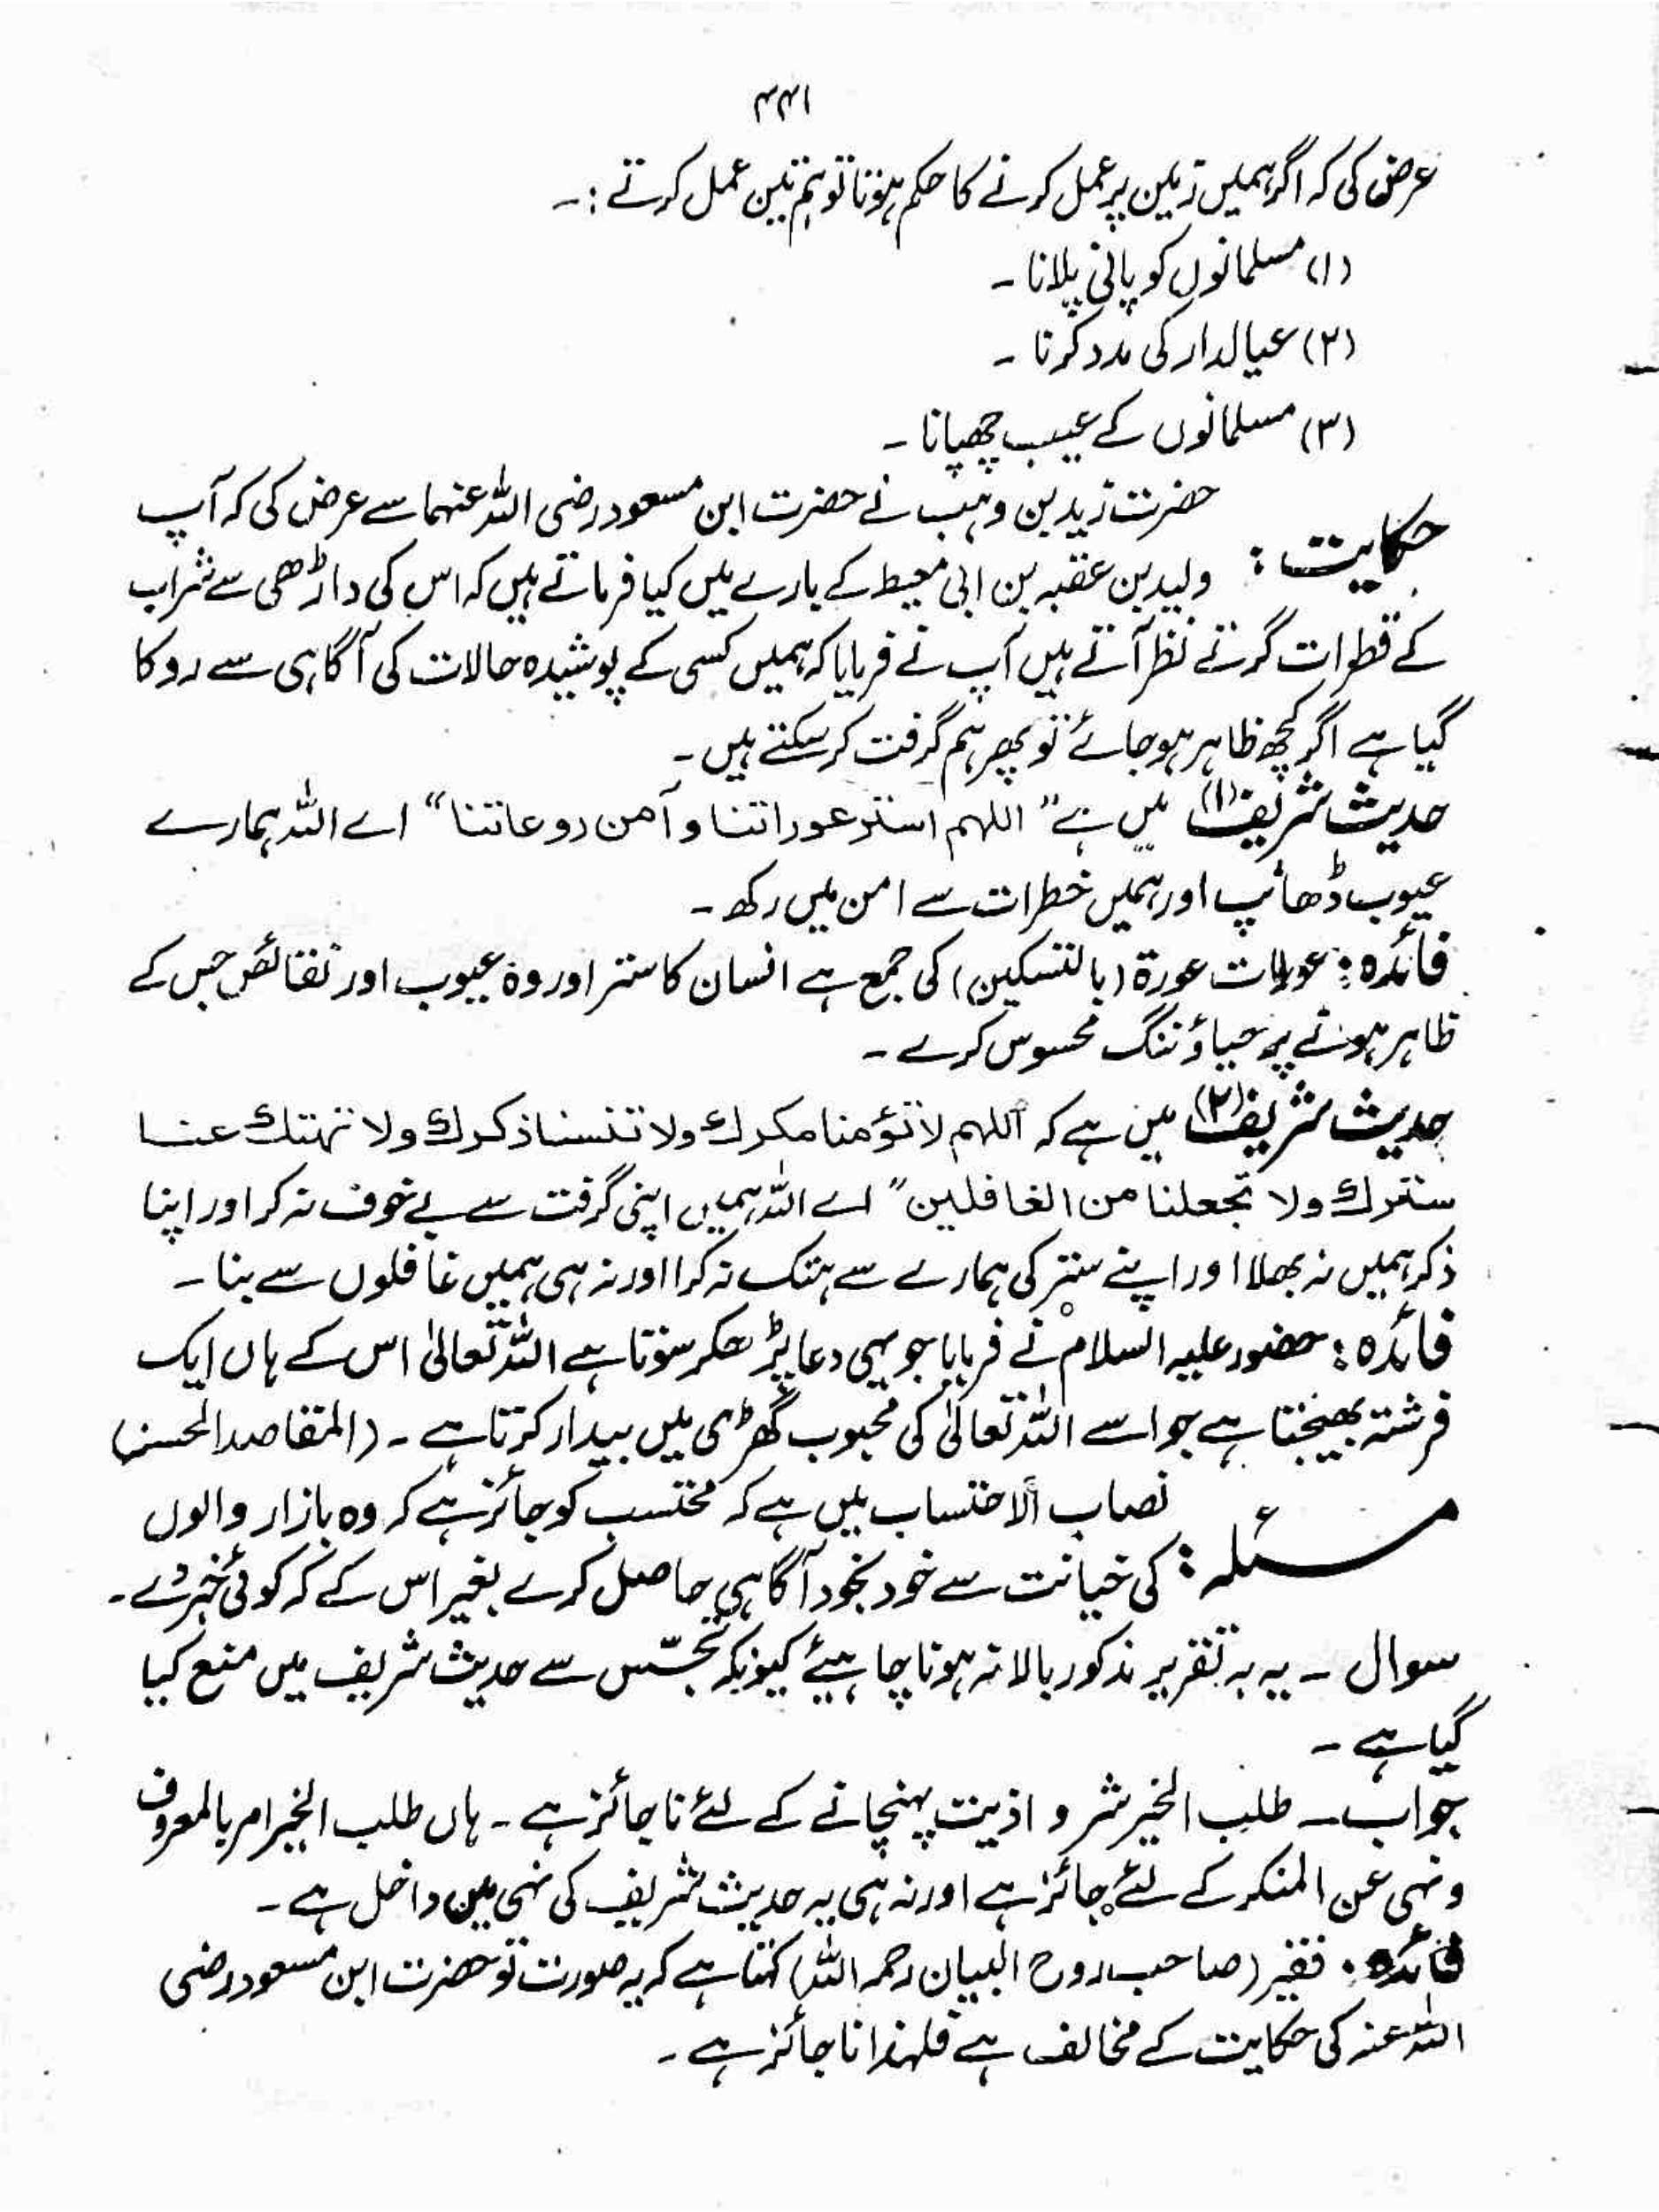 ۴۴۱
عرض کی کہ اگر ہمیں زمین پر عمل کرنے کا حکم ہوتا تو ہم تین عمل کرتے :۔
(۱) مسلمانوں کو پانی پلانا ۔
(۲) عیالدار کی مدد کرنا ۔
(۳) مسلمانوں کے عیب چھپانا ۔
حضرت زید بن وہب نے حضرت ابن مسعود رضی اللہ عنہما سے عرض کی کہ آپ
حکایت : ولید بن عقبہ بن ابی معیط کے بارے میں کیا فرماتے ہیں کہ اس کی داڑھی سے شراب
کے قطرات گرتے نظر آتے ہیں آپ نے فرمایا کہ ہمیں کسی کے پوشیدہ حالات کی آگاہی سے روکا
گیا ہے اگر کچھ ظاہر ہو جائے تو پھر ہم گرفت کر سکتے ہیں ۔
حدیث شریف (۱) میں ہے ” اللہم استر عوراتنا و آمن روعاتنا “ اے اللہ ہمارے
عیوب ڈھانپ اور ہمیں خطرات سے امن میں رکھ ۔
فائدہ : عورات عورة (بالتسکین) کی جمع ہے انسان کا ستر اور وہ عیوب اور نقائص جس کے
ظاہر ہونے پر حیاؤ ننگ محسوس کرے ۔
حدیث شریف (۲) میں ہے کہ اللہم لا تؤمنا مکرك ولا تنسنا ذکرك ولا تہتك عنا
سترك ولا تجعلنا من الغافلین ” اے اللہ ہمیں اپنی گرفت سے بے خوف نہ کر اور اپنا
ذکر ہمیں نہ بھلا اور اپنے ستر کی ہمارے سے ہتک نہ کرا اور نہ ہی ہمیں غافلوں سے بنا ۔
فائدہ : حضور علیہ السلام نے فرمایا جو یہی دعا پڑھ کر سوتا ہے اللہ تعالیٰ اس کے ہاں ایک
فرشتہ بھیجتا ہے جو اسے اللہ تعالیٰ کی محبوب گھڑی میں بیدار کرتا ہے ۔ (المقاصد الحسنہ)
نصاب الاحتساب میں ہے کہ محتسب کو جائز ہے کہ وہ بازار والوں
مسئلہ : کی خیانت سے خود بخود آگاہی حاصل کرے بغیر اس کے کہ کوئی خبر دے ۔
سوال ۔ یہ بہ تقریر مذکور بالا نہ ہونا چاہیئے کیونکہ تجسّس سے حدیث شریف میں منع کیا
گیا ہے ۔
جواب ۔ طلب الخیر شر و اذیت پہنچانے کے لئے ناجائز ہے ۔ ہاں طلب الخیر امر بالمعروف
و نہی عن المنکر کے لئے جائز ہے اور نہ ہی یہ حدیث شریف کی نہی میں داخل ہے ۔
فائدہ : فقیر (صاحب روح البیان رحمہ اللہ) کہتا ہے کہ یہ صورت تو حضرت ابن مسعود رضی
اللہ عنہ کی حکایت کے مخالف ہے فلہذا ناجائز ہے ۔